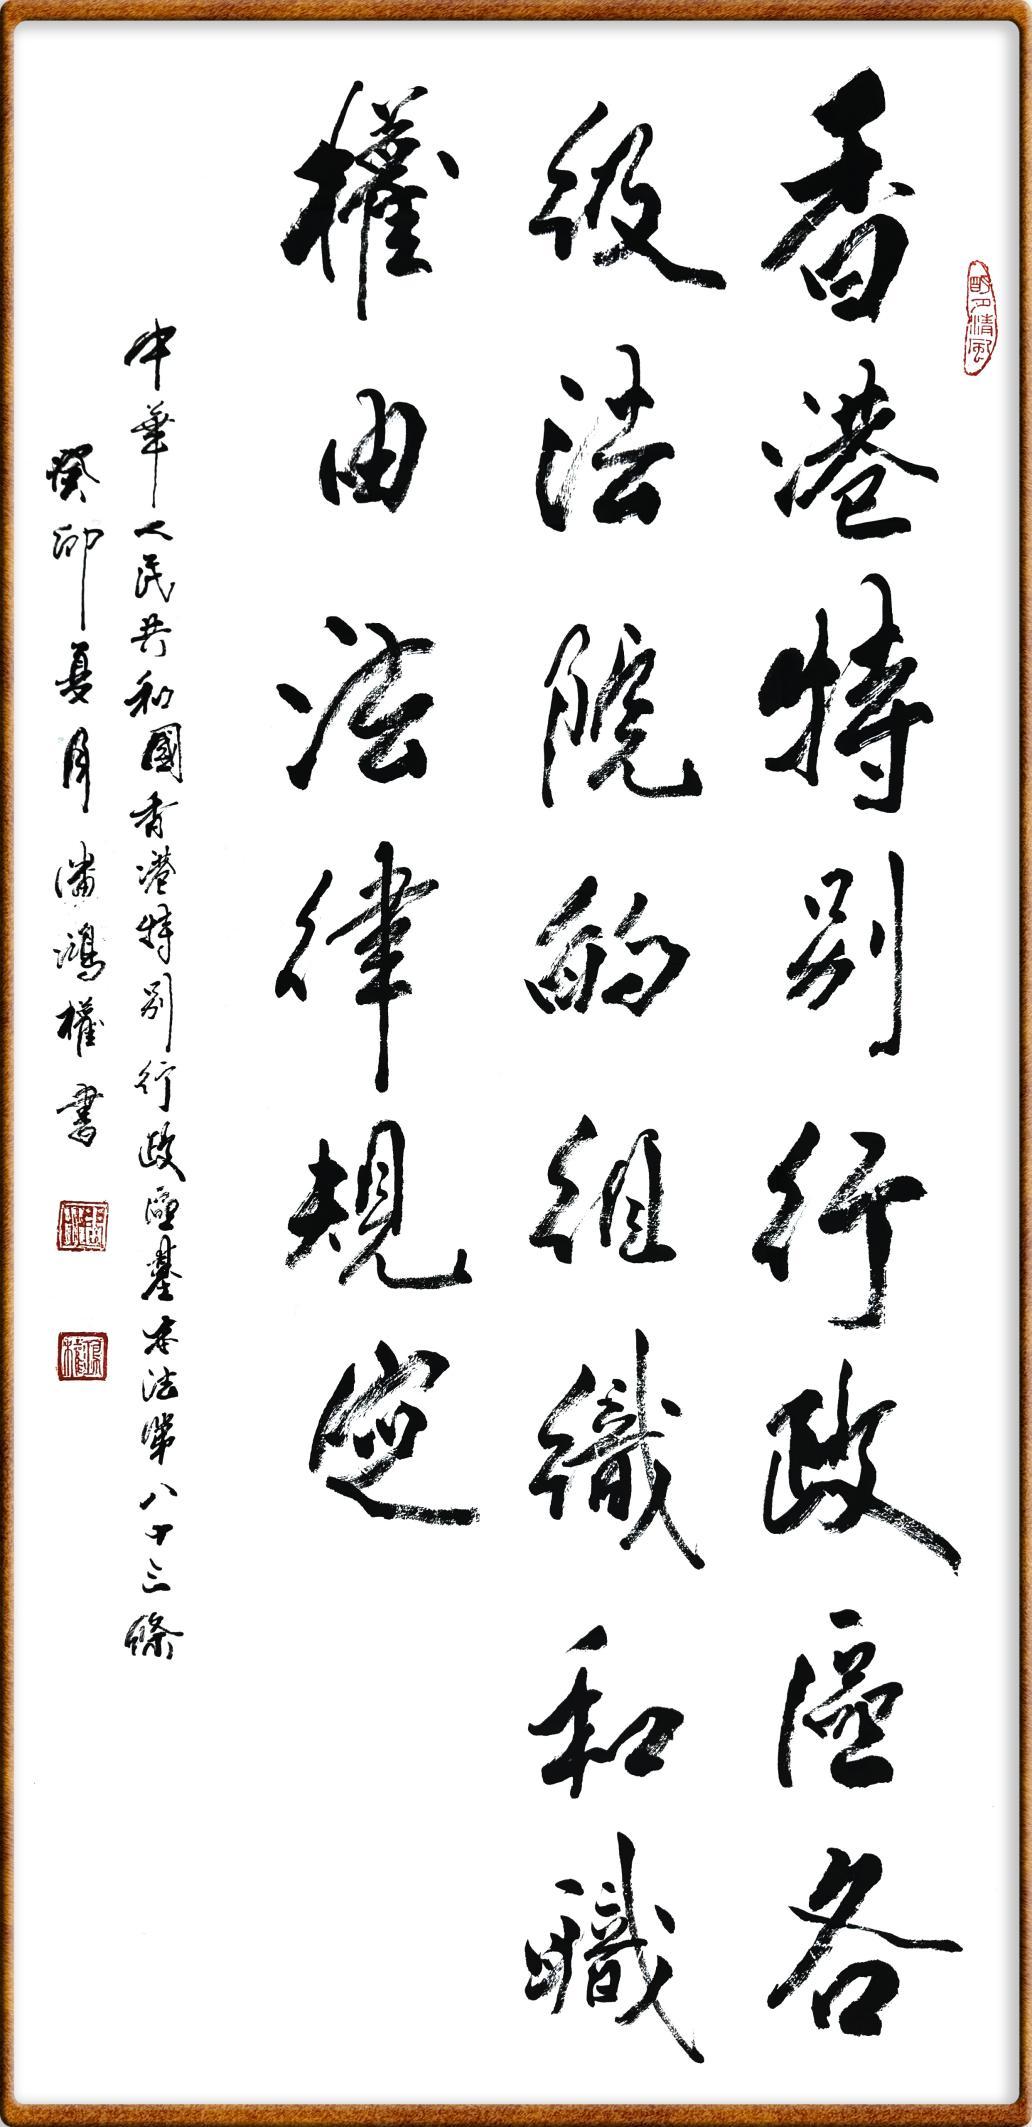 香港特别行政區各
级法院的组織和職
權由法律規定
中華人民共和國香港特别行政區基本法第八十三條
癸卯夏月潘鴻權書